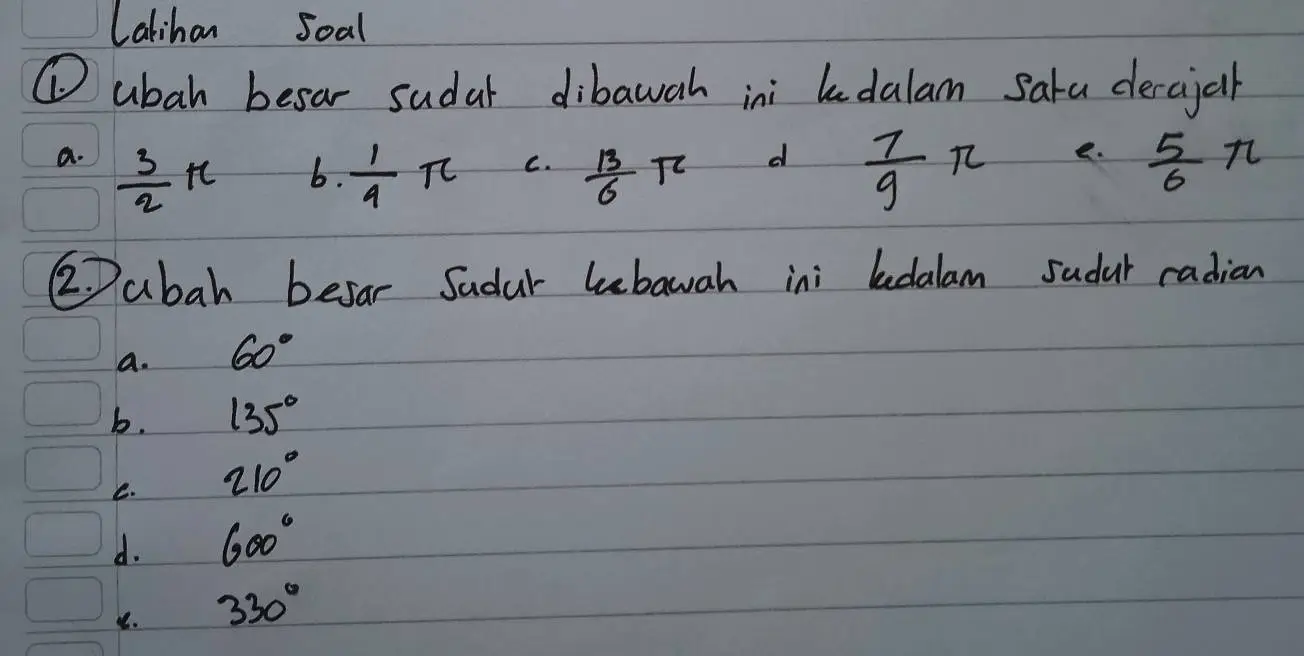 Latihan Soal
1. ubah besar sudut dibawah ini kedalam satu derajat
a. 3/2 π b. 1/4 π c. 13/6 π d 7/9 π e. 5/6 π
2. ubah besar Sudut kebawah ini kedalam sudut radian
a. 60°
b. 135°
c. 210°
d. 600°
e. 330°